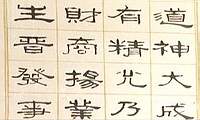 生財有道
晋商精神
發揚光大
事業乃成